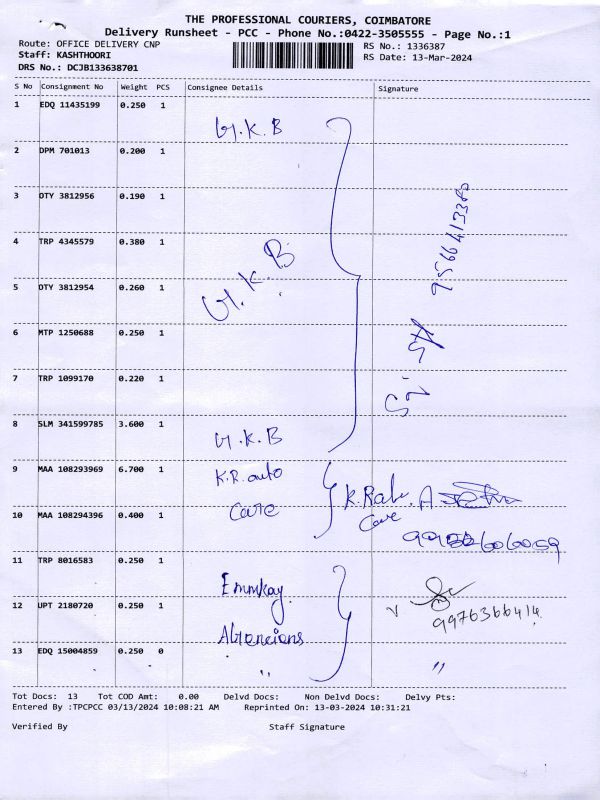 THE PROFESSIONAL COURIERS, COIMBATORE
Delivery Runsheet - PCC - Phone No.:0422-3505555 - Page No.:1
Route: OFFICE DELIVERY CNP RS No.: 1336387
Staff: KASHTHOORI RS Date: 13-Mar-2024
DRS No.: DCJB133638701
S No Consignment No Weight PCS Consignee Details Signature
1 EDQ 11435199 0.250 1
G.K.B
2 DPM 701013 0.200 1
3 DTY 3812956 0.190 1
9566413380
4 TRP 4345579 0.380 1
G.K.B
5 DTY 3812954 0.260 1
6 MTP 1250688 0.250 1
7 TRP 1099170 0.220 1
8 SLM 341599785 3.600 1
G.K.B
9 MAA 108293969 6.700 1 K.R. auto
Care
10 MAA 108294396 0.400 1
Care
11 TRP 8016583 0.250 1
Emmkay
12 UPT 2180720 0.250 1
9976366414
13 EDQ 15004859 0.250 0
" "
Tot Docs: 13 Tot COD Amt: 0.00 Delvd Docs: Non Delvd Docs: Delvy Pts:
Entered By :TPCPCC 03/13/2024 10:08:21 AM Reprinted On: 13-03-2024 10:31:21
Verified By Staff Signature